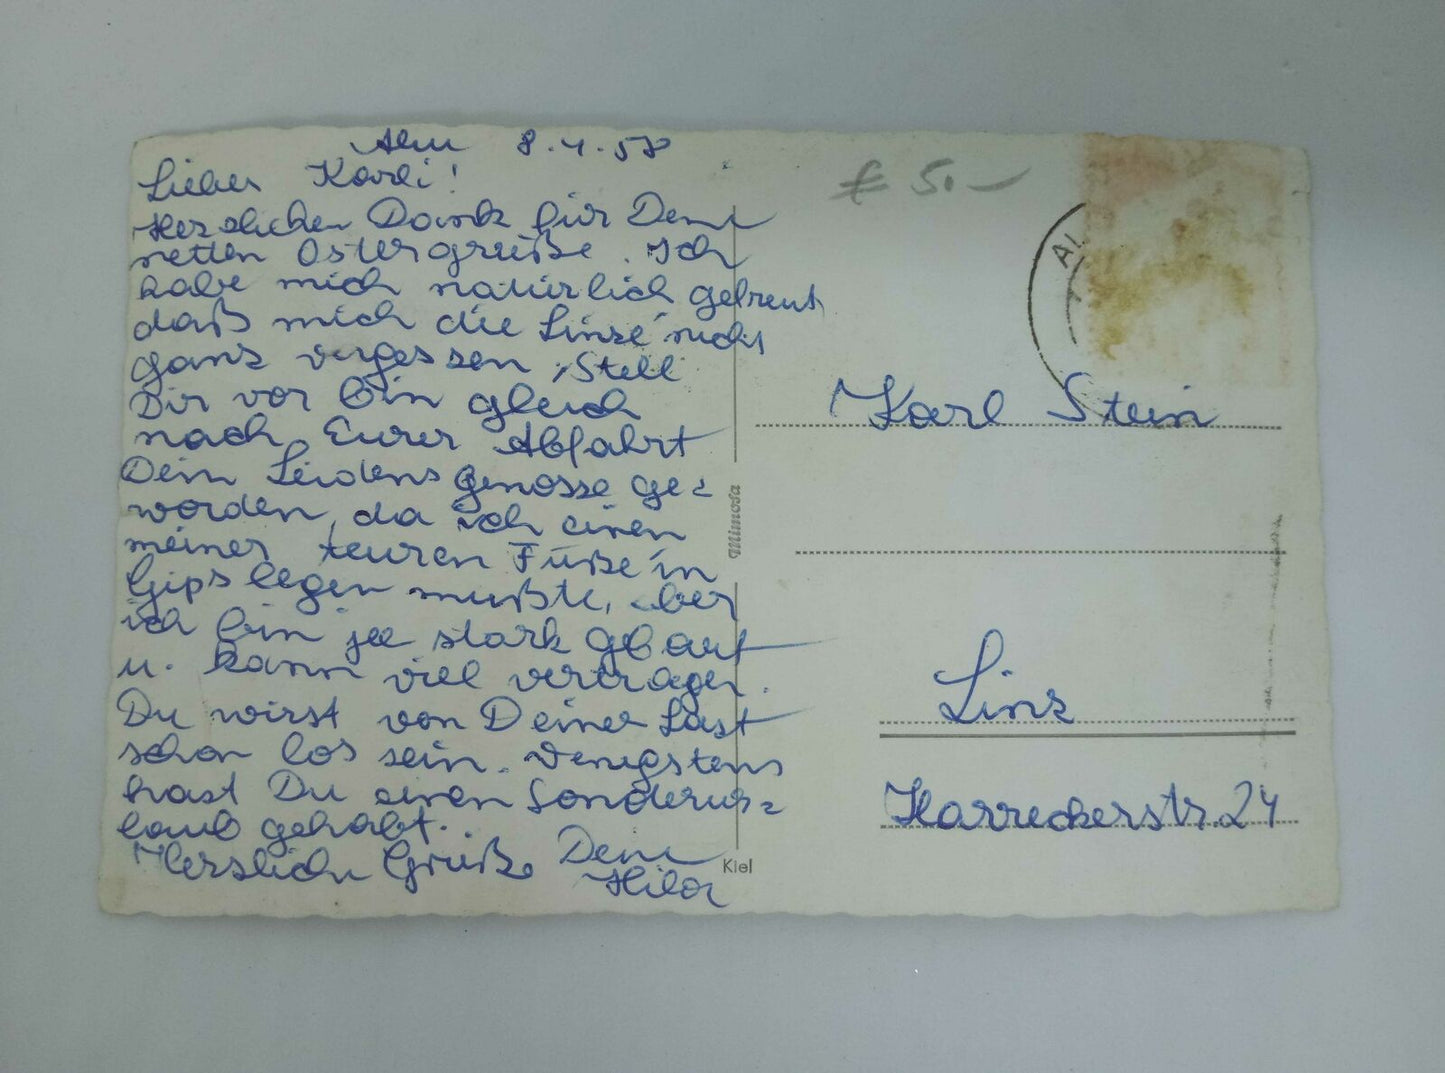 Alm 8.4.58
Lieber Karli!
Herzlichen Dank für Deine
netten Ostergrüße. Ich
habe mich natürlich gefreut,
daß mich die Linze nicht
ganz vergessen. Stell
Dir vor bin gleich
nach Eurer Abfahrt
Dein Leidensgenosse ge=
worden, da ich einen
meiner teuren Füße in
Gips legen mußte, aber
ich bin ja stark gebaut
u. kann viel vertragen.
Du wirst von Deiner Last
schon los sein. Wenigstens
hast Du einen Sonderur=
laub gehabt.
Herzlich Grüße Deine
Hilda
€ 5.-
AL
Karl Stein
Mimosa
Linz
Harreckerstr. 24
Kiel